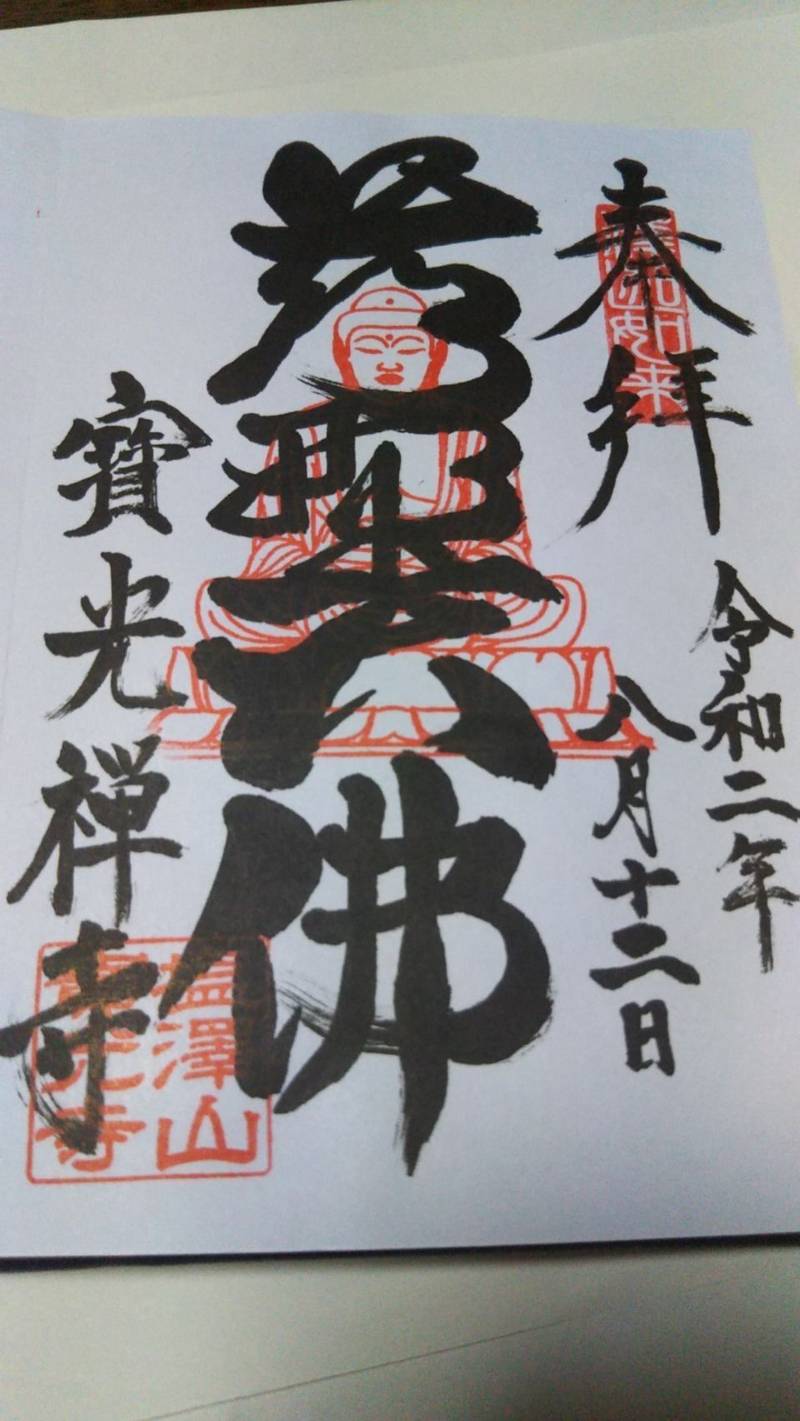 奉拝
令和二年
八月十二日
鹿野大佛
寶光禅寺
塩澤山
寶光寺